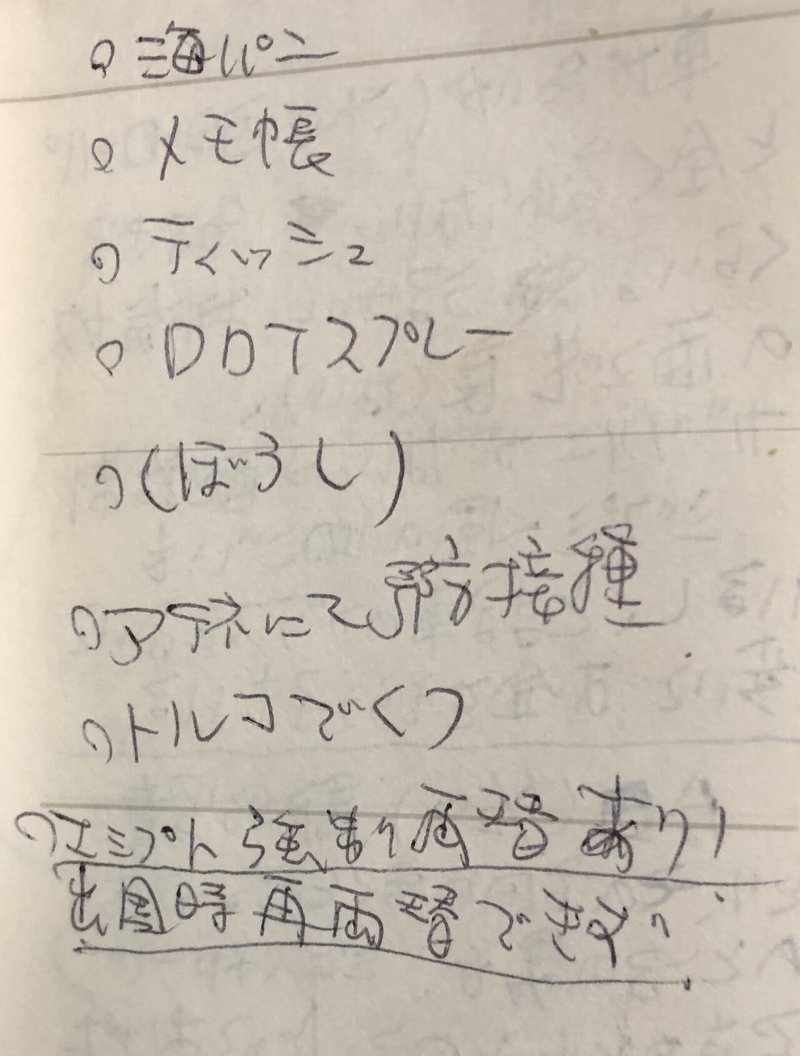 ○海パン
○メモ帳
○ティッシュ
○DDTスプレー
○(ぼうし)
○アテネにて予防接種
○トルコでくつ
○エジプト強制両替あり!
出国時再両替できない